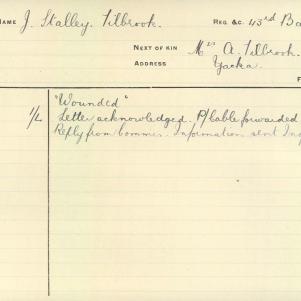 NAME J. Stalley. Tilbrook. REG &C. 43rd Ba
NEXT OF KIN Mrs A. Tilbrook.
ADDRESS Yacka.
F
"Wounded"
1/2 Letter acknowledged. P/Cable forwarded
Reply from Commr. Information sent Inq